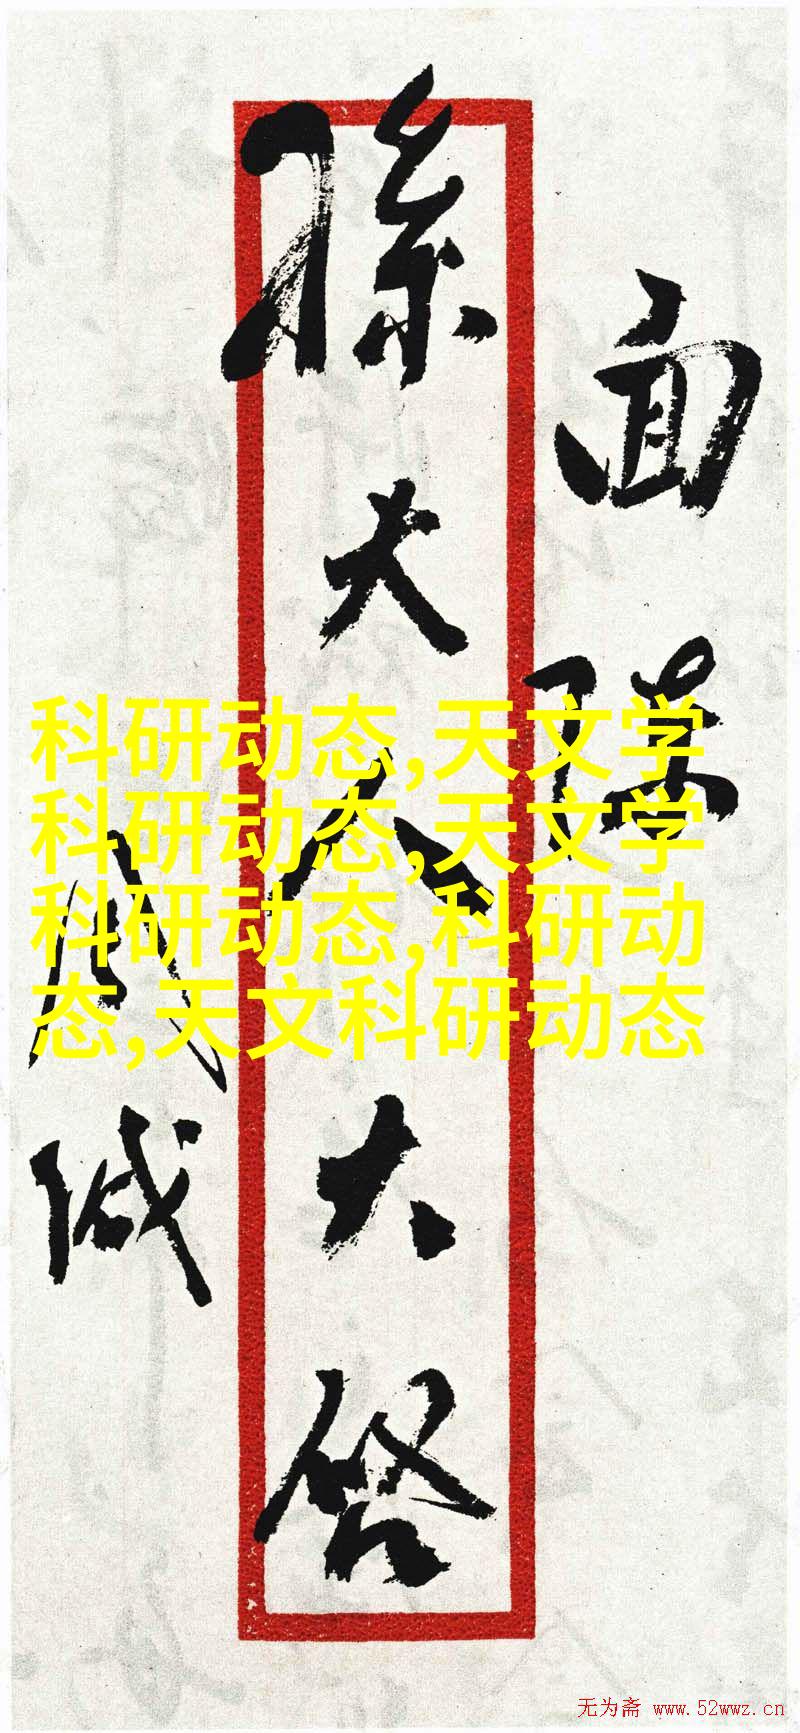 面陳
孫大人大啓
周緘
科研动态,天文学
科研动态,天文学
科研动态,科研动
态,天文科研动态
无为斋 www.52wwz.cn